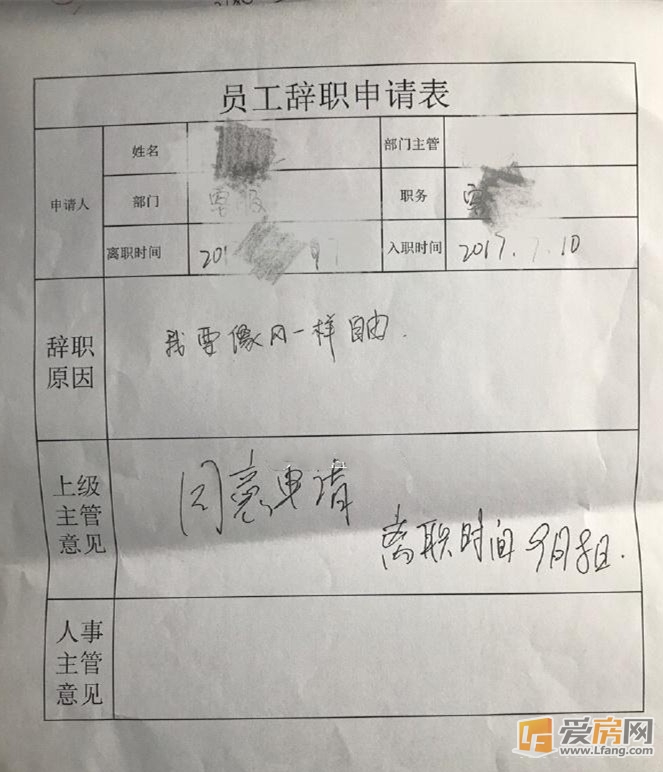 员工辞职申请表
申请人
姓名
部门主管
部门
客服
职务
离职时间
201
入职时间
2017.7.10
辞职
原因
我要像风一样自由.
上级
主管
意见
同意申请
离职时间9月8日.
人事
主管
意见
爱房网
www.Lfang.com